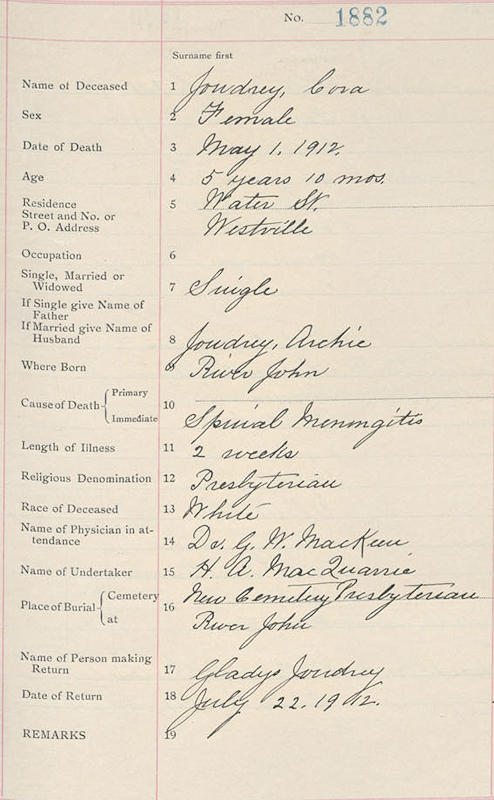 No. 1882
Surname first
Name of Deceased 1 Joudrey, Cora
Sex 2 Female
Date of Death 3 May 1, 1912.
Age 4 5 years 10 mos.
Residence 5 Water St.
Street and No. or
P. O. Address Westville
Occupation 6
Single, Married or
Widowed 7 Single
If Single give Name of
Father
If Married give Name of
Husband 8 Joudrey, Archie
Where Born 9 River John
Cause of Death Primary 10
Immediate Spinal Meningitis
Length of Illness 11 2 weeks
Religious Denomination 12 Presbyterian
Race of Deceased 13 White
Name of Physician in at-
tendance 14 Dr. G. W. MacKeen
Name of Undertaker 15 H. A. MacQuarrie
Place of Burial Cemetery 16 New Cemetery Presbyterian
at River John
Name of Person making
Return 17 Gladys Joudrey
Date of Return 18 July 22. 1912.
REMARKS 19